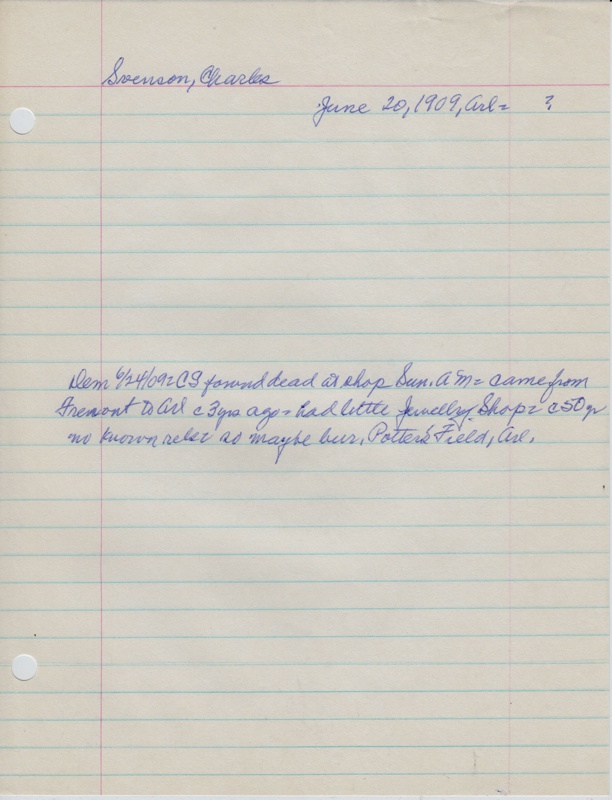 Svenson, Charles
June 20, 1909, Arl= ?
Dem 6/24/09= CS found dead at shop Sun. A M= came from
Fremont to Arl c 3 yrs ago= had little Jewellry Shop= c50 yr
no known rels= so maybe bur. Potter's Field, Arl.